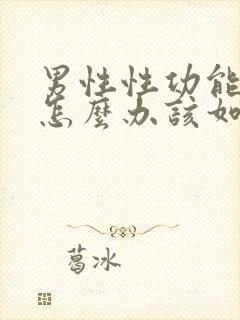 男性性功能
怎麼办該如
葛冰